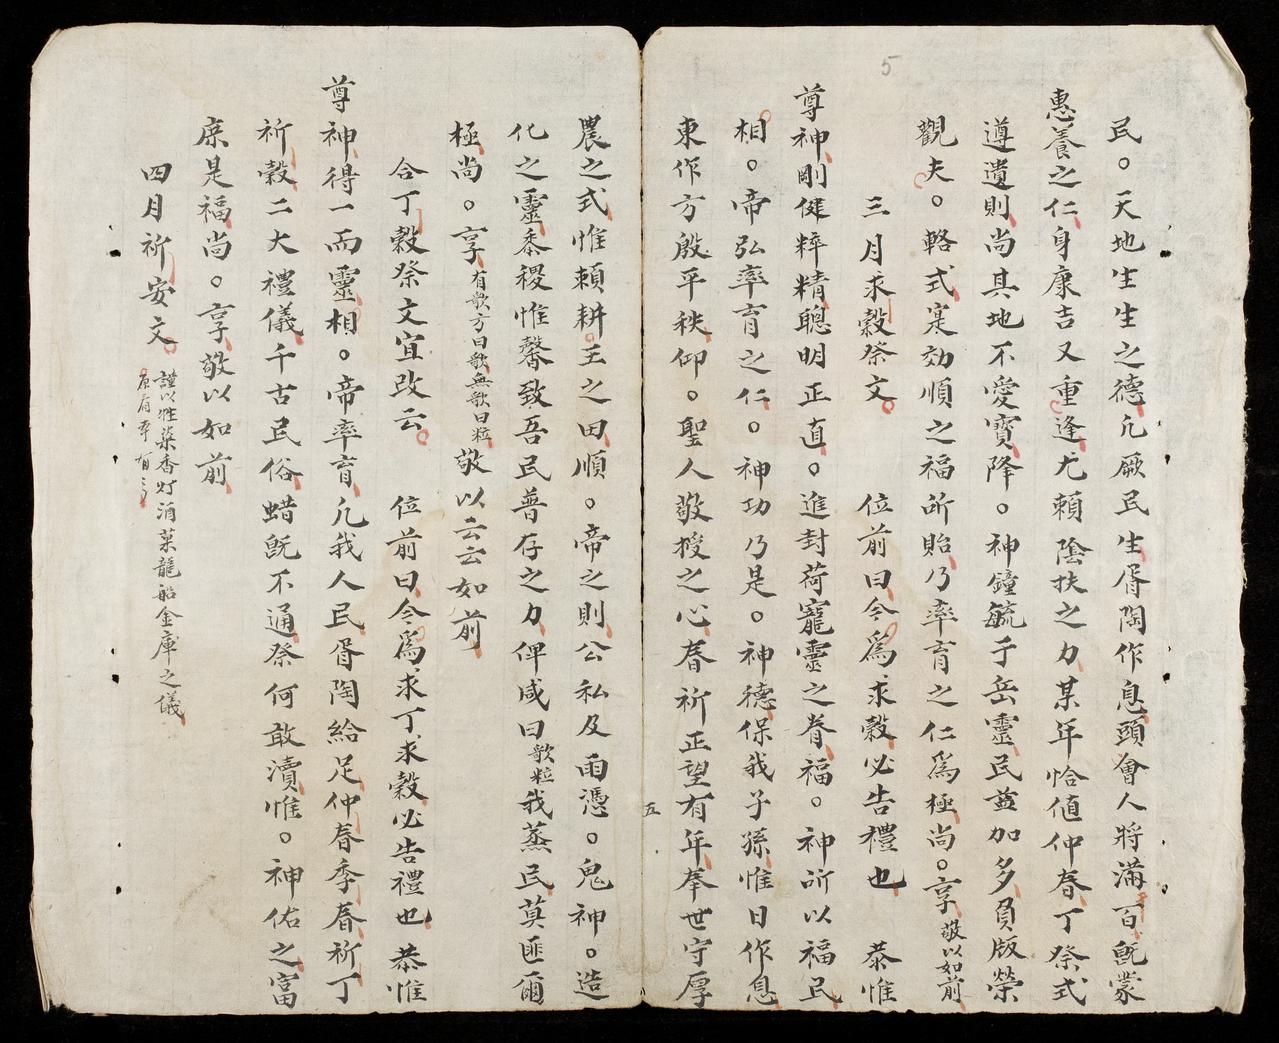 5
民。天地生生之德凢厥民生胥陶作息頭會人將滿百旣蒙
惠養之仁身康吉又重逢尤賴陰扶之力某年恰値仲春丁祭式
遵遺則尚其地不愛寶降。神鐘毓于岳靈民益加多負版榮
觀夫。輅式寔効順之福所貽乃率育之仁爲極尚。享敬以如前
三月求穀祭文。 位前曰今爲求穀必告禮也 恭惟
尊神剛健粹精聰明正直。進封荷寵靈之眷福。神所以福民
相。帝弘率育之仁。神功乃是。神德保我子孫惟日作息
東作方殷平秩仰。聖人敬授之心春祈正望有年奉世守厚
五
農之式惟賴耕。王之田順。帝之則公私及雨憑。鬼神。造
化之靈黍稷惟馨致吾民普存之力俾咸曰歌粒我蒸民莫匪爾
極尚。享有歌方曰歌無歌曰粒敬以云云如前
合丁穀祭文宜改云。 位前曰今爲求丁求穀必告禮也 恭惟
尊神得一而靈相。帝率育凢我人民胥陶給足仲春季春祈丁
祈穀二大禮儀千古民俗蜡旣不通祭何敢瀆惟。神佑之富
庶是福尚。享敬以如前
四月祈安文。謹以牲粢香灯酒菓龍船金庫之儀
有